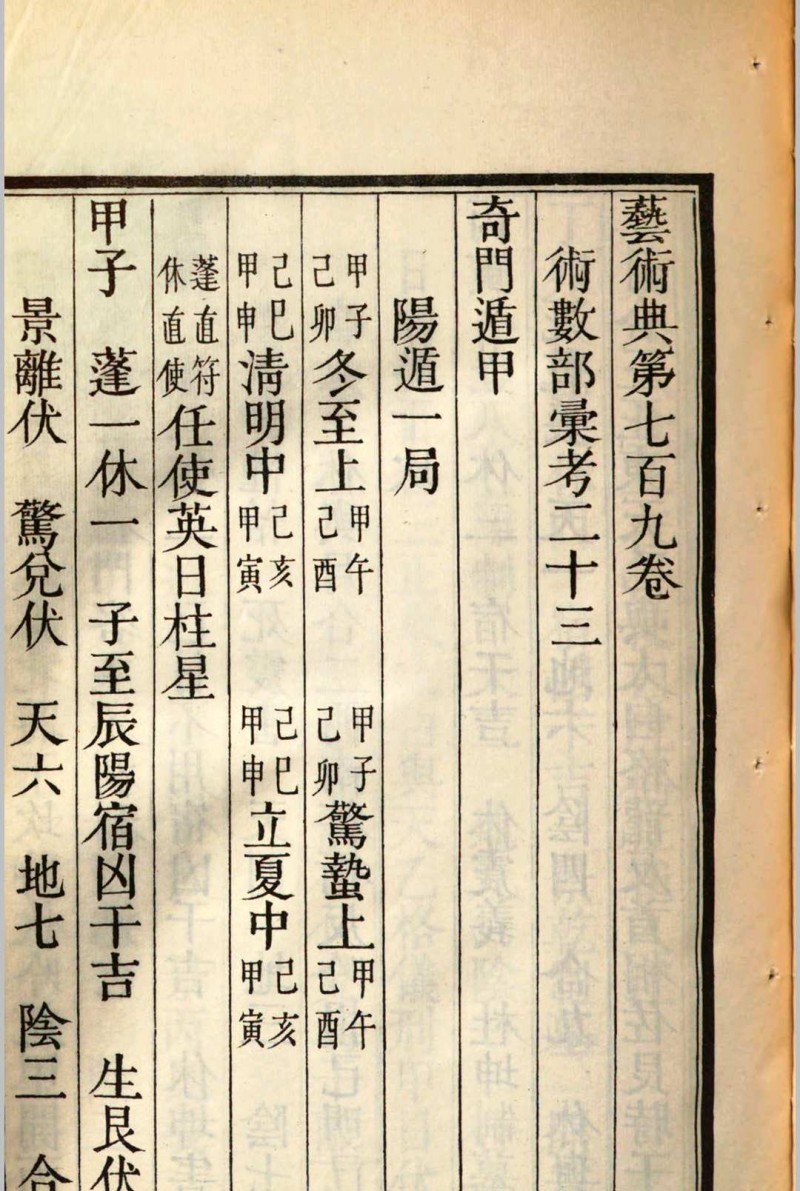 藝術典第七百九卷
術數部彙考二十三
奇門遁甲
陽遁一局
甲子己卯冬至上甲午己酉 甲子己卯驚蟄上甲午己酉
己巳甲申清明中己亥甲寅 己巳甲申立夏中己亥甲寅
蓬直符休直使任使英日柱星
甲子 蓬一休一 子至辰陽宿凶干吉 生艮伏
景離伏 驚兌伏 天六 地七 陰三 合